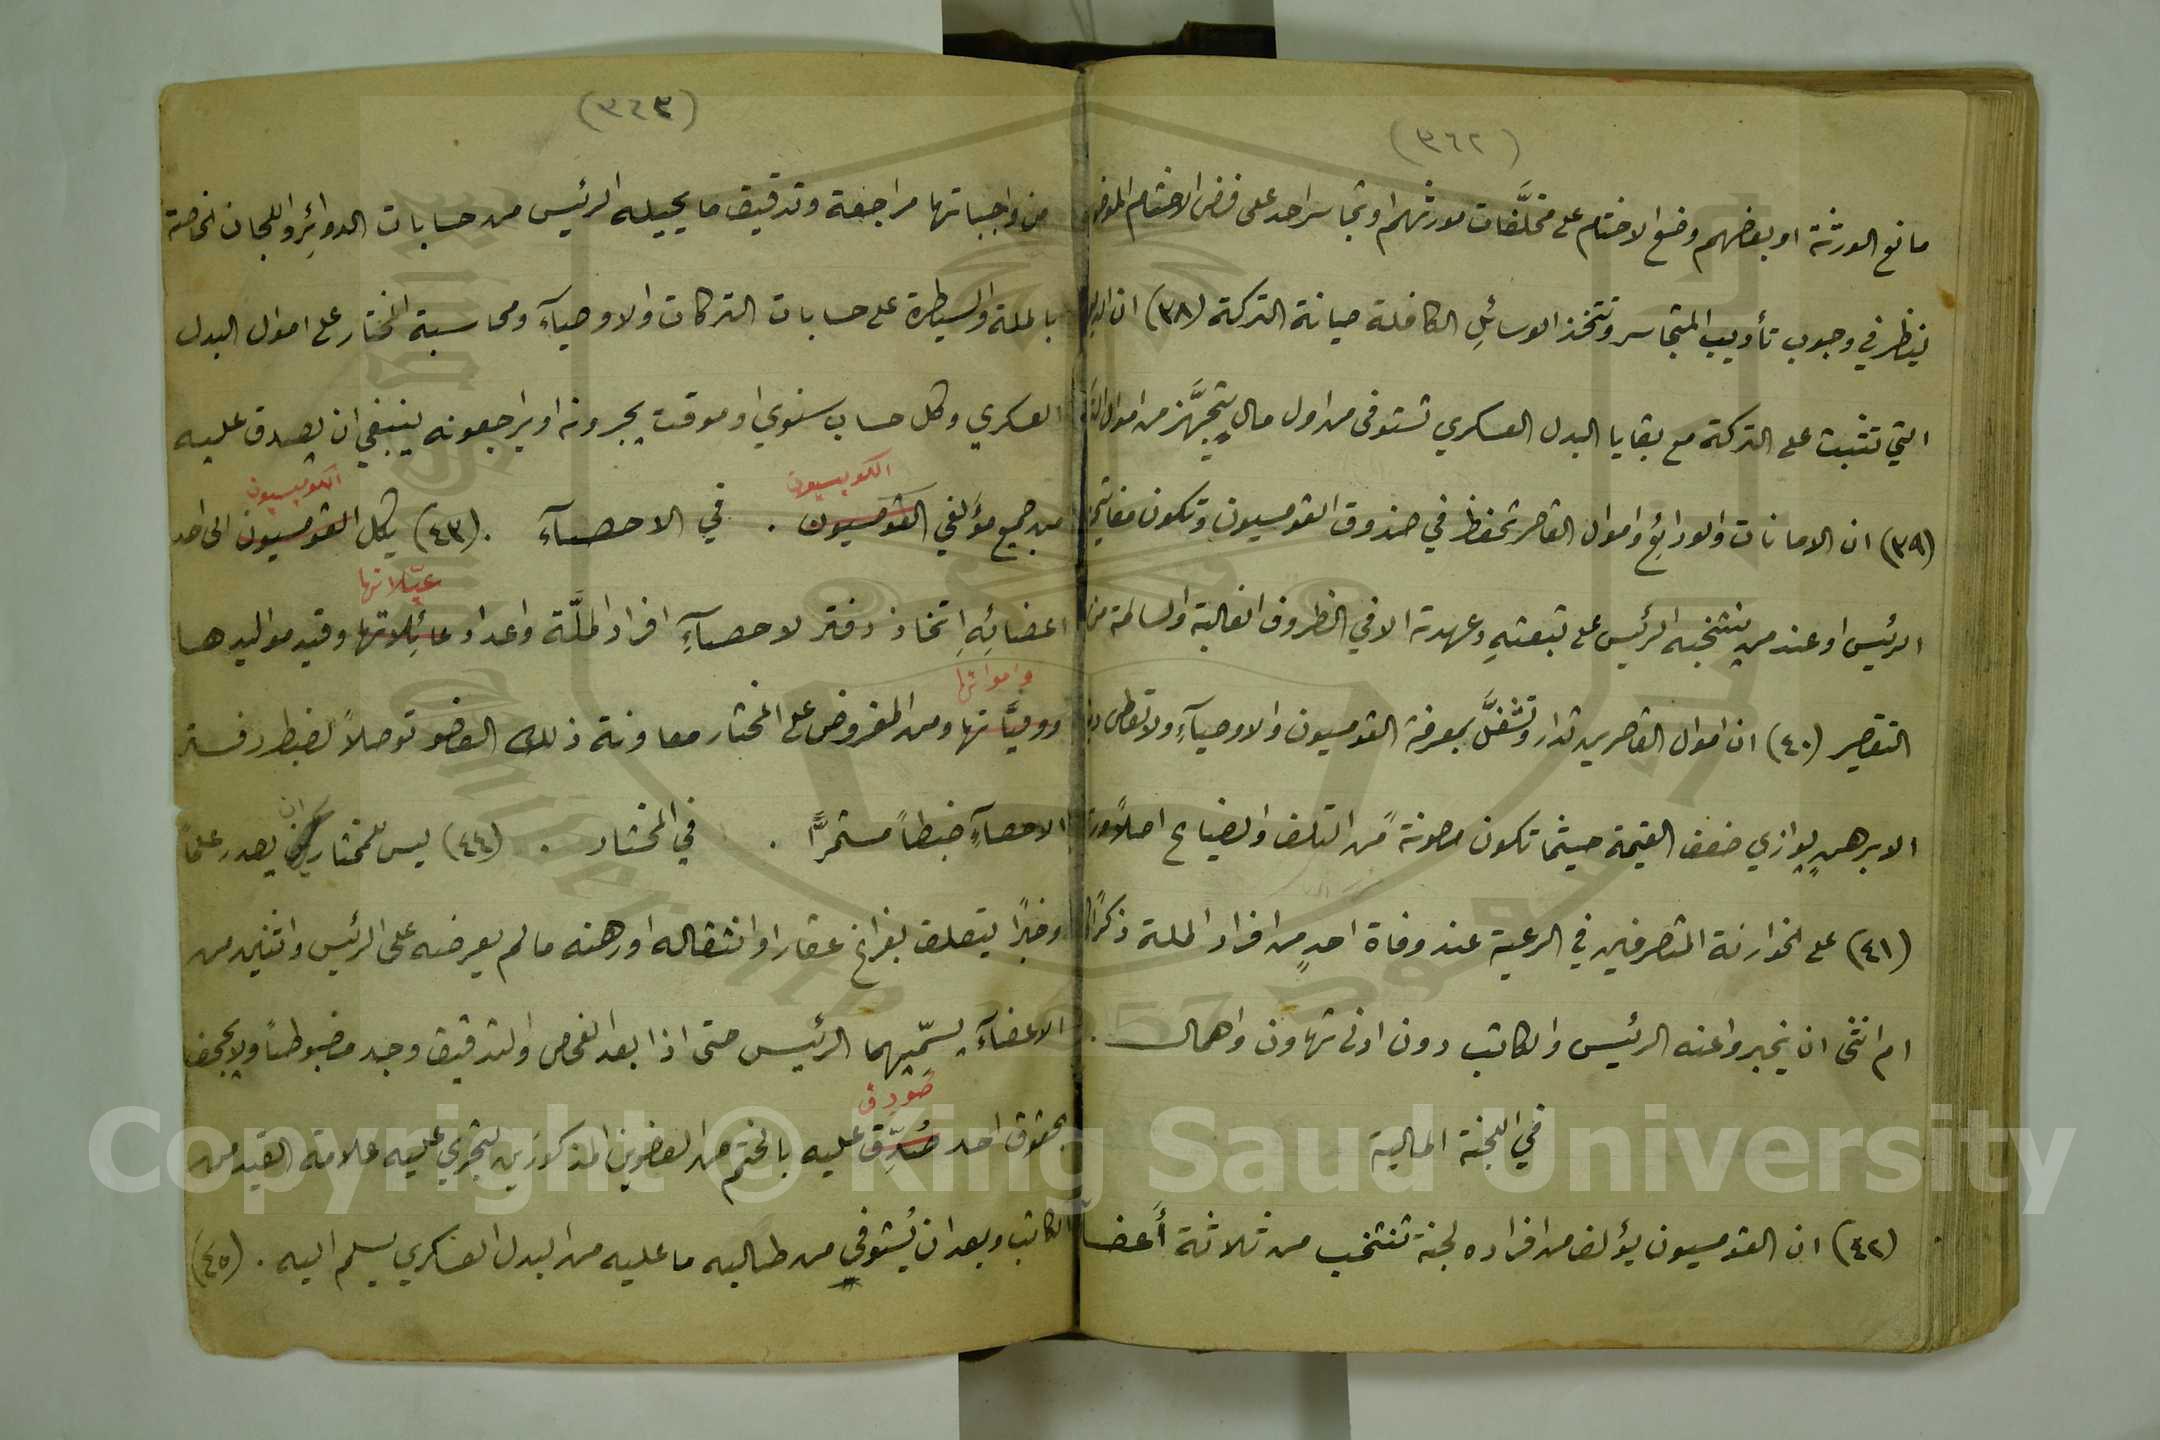 (٣٦٢)
مانع الورثة او بعضهم وضع الاختام على مخلَّفات مورثهم او تجاسر احد على فض الاختام
ينظر في وجوب تأديب المتجاسر وتتخذ الوسائل الكافلة صيانة التركة (٣٨) ان
التي تثبت على التركة مع بقايا البدل العسكري تستوفى من اول مال يتجهَّز من اموال
(٣٩) ان الامانات والودائع واموال القاصر تحفظ في صندوق القومسيون وتكون
الرئيس او عند من ينتخبه الرئيس على تبعته وعهدته الا في الظروف الغالبة والسالمة من
التقصير (٤٠) ان اموال القاصرين تدار وتشغَّل بمعرفة القومسيون والاوصيآء ولا تعطى
الا برهن يوازي ضعف القيمة حيثما تكون مصونة من التلف والضياع اصلاً
(٤١) على الخوارنة المتصرفين في الرعية عند وفاة احدٍ من افراد الملة ذكرًا
ام انثى ان يخبروا عنه الرئيس والكاتب دون ادنى تهاون واهمال .
في اللجنة المالية
(٤٢) ان القومسيون يؤلف من افراده لجنة تنتخب من ثلاثة أعضا
(٣٦٣)
من واجباتها مراجعة وتدقيق ما يحيله الرئيس من حسابات الدوائر واللجان الخاصة
بالملة والسيطرة على حسابات التركات والاوصيآء ومحاسبة المختار على اموال البدل
العسكري وكل حساب سنوي او موقت يجرونه او يراجعونه ينبغي ان يصدق عليه
الكوميسيون الكوميسيون
من جميع مؤلفي القومسيون . في الاحصآء . (٤٣) يكل القومسيون الى احد
عيلاتها
اعضائه اتخاذ دفتر لاحصآء افراد الملَّة واعداد عائلاتها وقيد مواليدها
وامواتها
ووفياتها ومن المفروض على المختار معاونة ذلك العضو توصلاً لضبط دفتر
الاحصآء ضبطاً مستمرًّا . في المختار . (٤٤) ليس للمختار ان يصدر علمًا
وخبرًا يتعلق بفراغ عقار او انتقاله او رهنه ما لم يعرضه على الرئيس واثنين من
الاعضآء يسمّيهما الرئيس حتى اذا بعد الفحص والتدقيق وجد مضبوطًا ولا يجحف
صودق
بحقوق احد صُدِّق عليه بالختم من العضوين المذكورين ليجري عليه علامة القيد من
الكاتب وبعد ان يُستوفي من طالبه ما عليه من البدل العسكري يسلم اليه . (٤٥)
Copyright © King Saud University